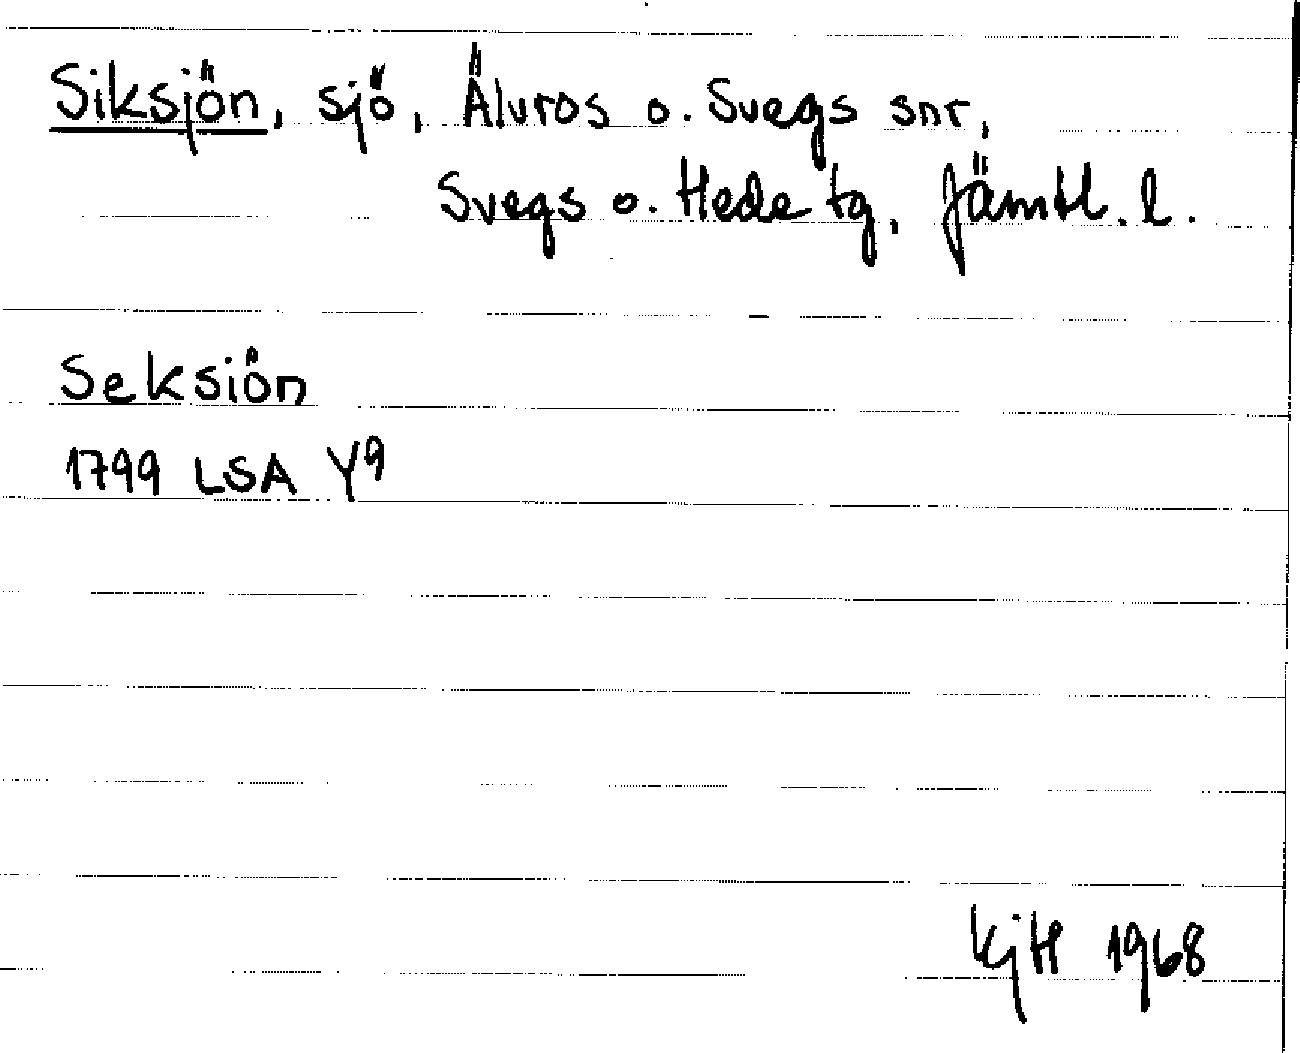 Siksjön, sjö, Älvros o. Svegs snr,
Svegs o. Hede tg, Jämtl. l.
Seksiön
1799 LSA Y9
KjH 1968